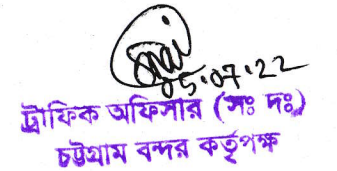 05.07.22
ট্রাফিক অফিসার (সঃ দঃ)
চট্টগ্রাম বন্দর কর্তৃপক্ষ